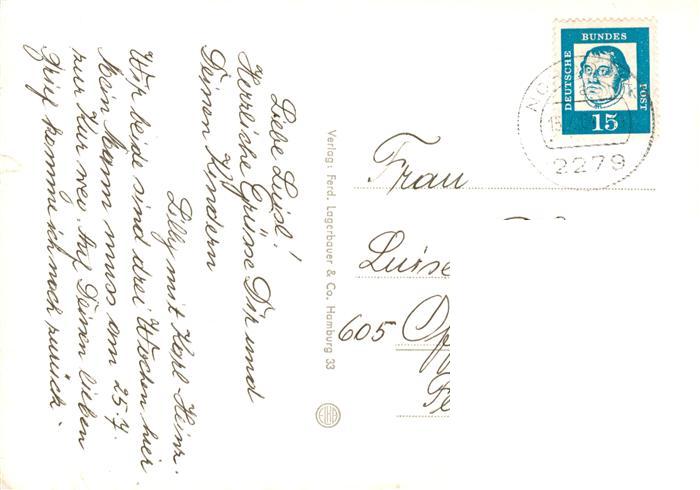 Liebe Luise!
Herzliche Grüsse Dir und
Deinen Kindern
Lilly mit Karl-Heinz.
Wir beide sind drei Wochen hier
Mein Mann muss am 25.7.
zur Kur weg. Auf Deinen lieben
Brief komme ich noch zurück.
Verlag: Ferd. Lagerbauer & Co. Hamburg 33
DEUTSCHE
BUNDES
POST
15
2279
Frau
Luise
605